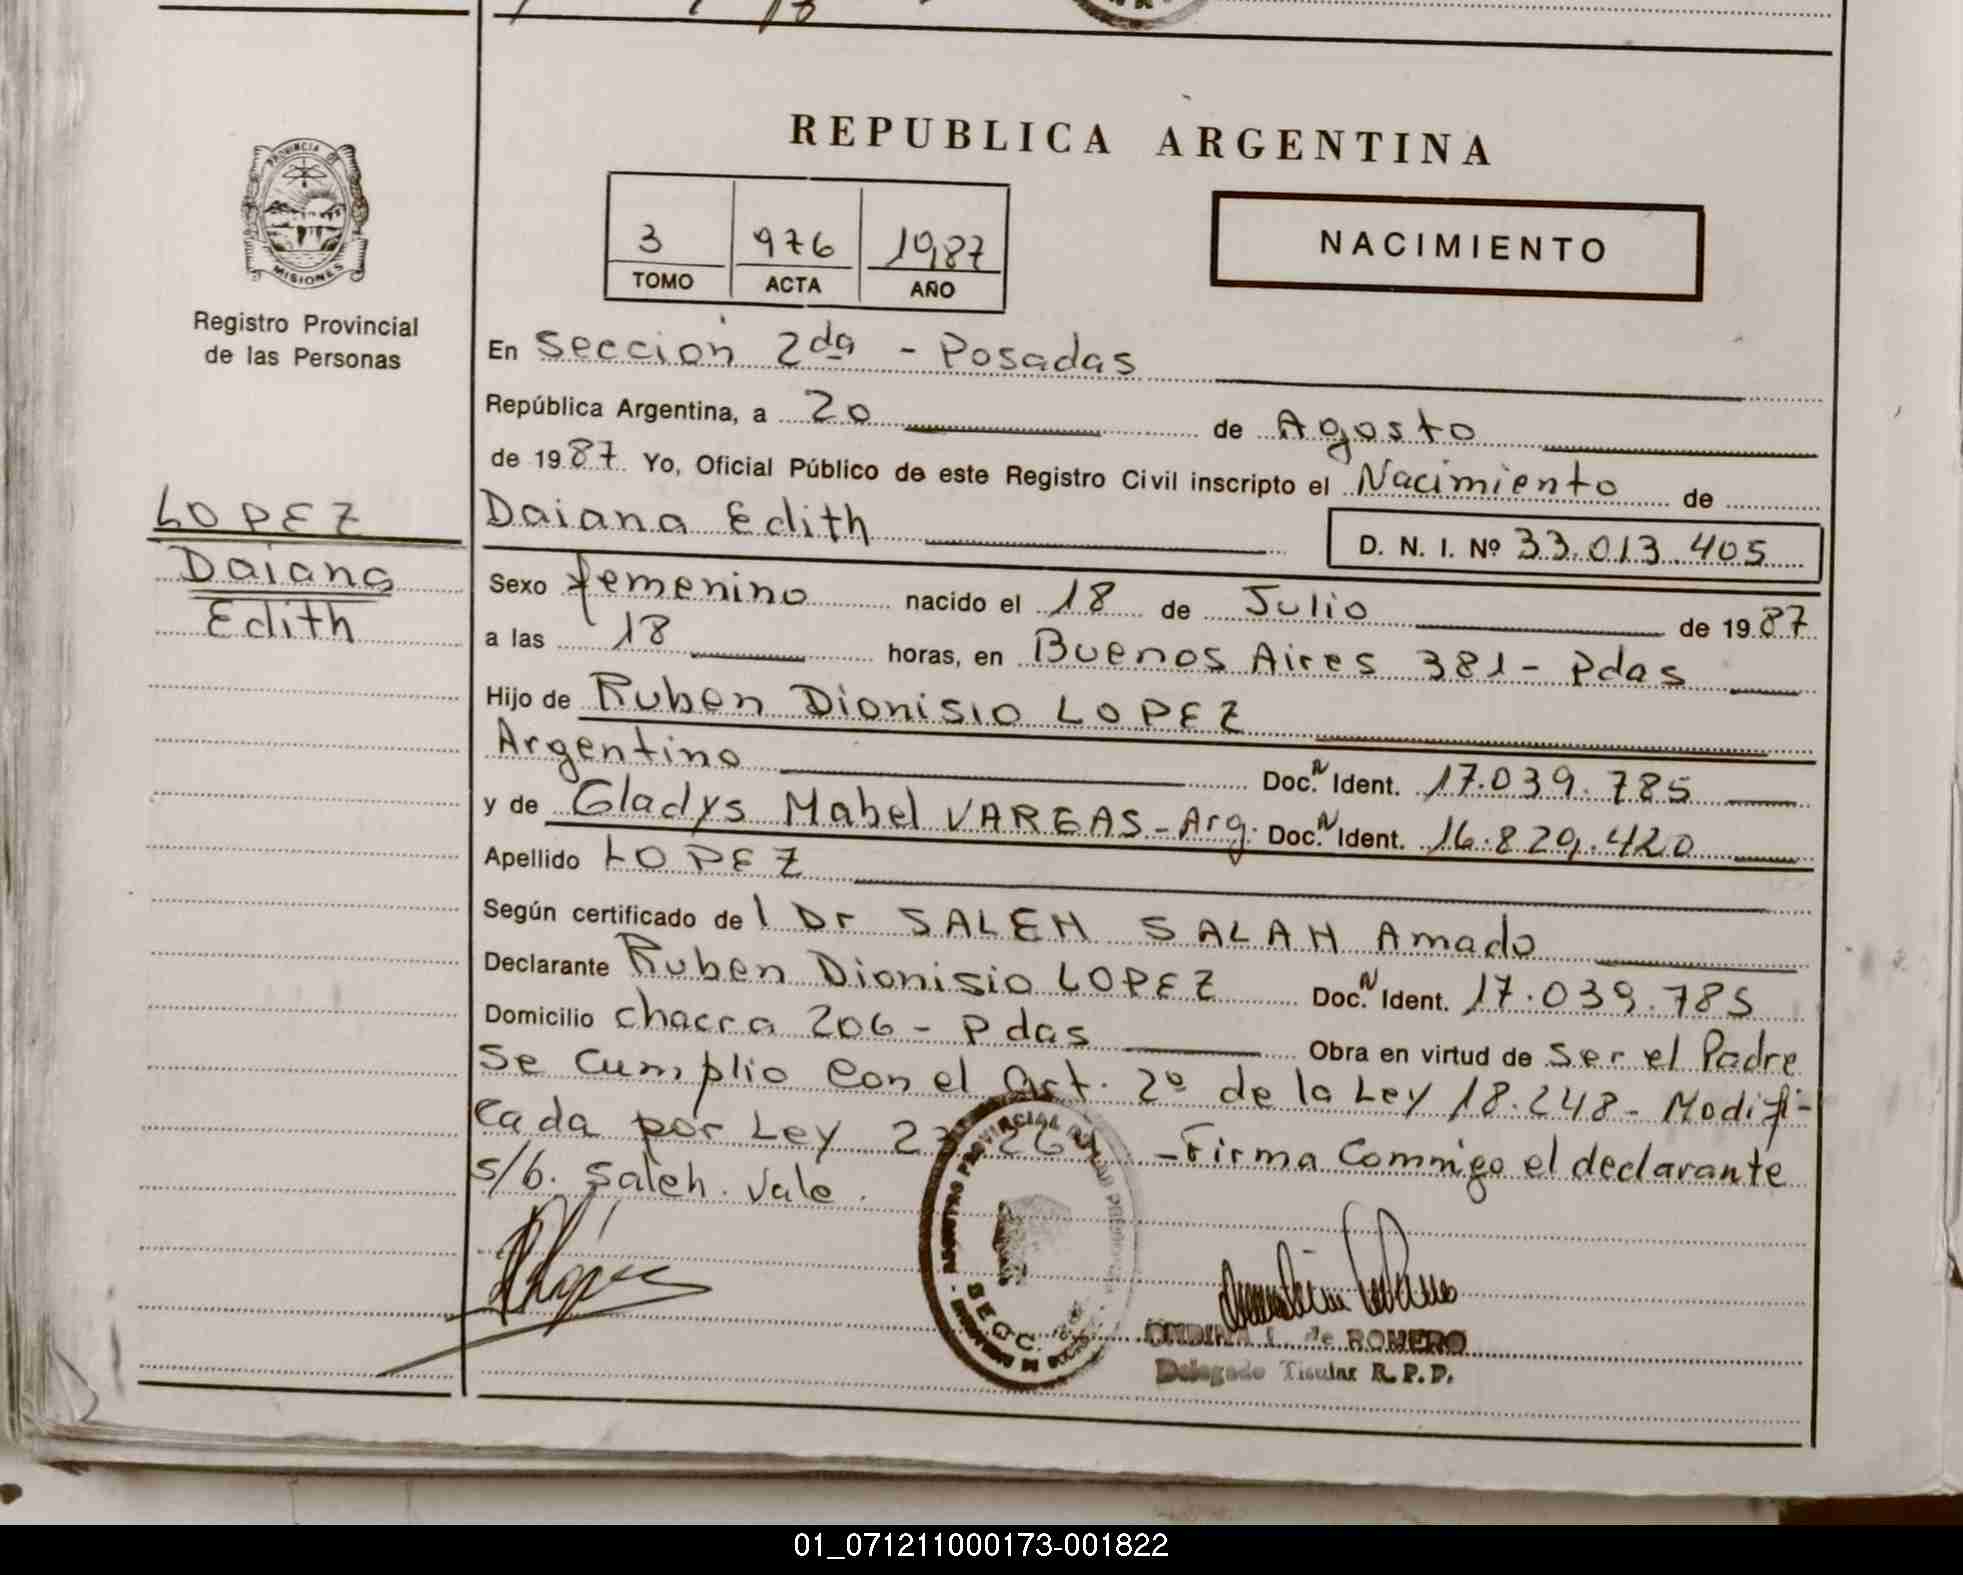 REPUBLICA ARGENTINA
PROVINCIA DE
MISIONES
Registro Provincial
de las Personas
3 976 1987
TOMO ACTA AÑO
NACIMIENTO
En Sección 2da - Posadas
República Argentina, a 20 de Agosto
de 1987 Yo, Oficial Público de este Registro Civil inscripto el Nacimiento de
LOPEZ
Daiana
Edith
Daiana Edith D. N. I. Nº 33.013.405
Sexo femenino nacido el 18 de Julio de 1987
a las 18 horas, en Buenos Aires 381 - Pdas
Hijo de Ruben Dionisio LOPEZ
Argentino Doc. N Ident. 17.039.785
y de Gladys Mabel VARGAS - Arg. Doc. N Ident. 16.829.420
Apellido LOPEZ
Según certificado del Dr SALEH SALAH Amado
Declarante Ruben Dionisio LOPEZ Doc. N Ident. 17.039.785
Domicilio chacra 206 - Pdas Obra en virtud de ser el Padre
Se Cumplio con el Art. 2º de la Ley 18.248 - Modifi-
cada por Ley - Firma Conmigo el declarante
s/b. Saleh. Vale.
R Lopez
REGISTRO PROVINCIAL DE LAS PERSONAS
SECC.
L. de ROMERO
Delegado Titular R.P.P.
01_071211000173-001822